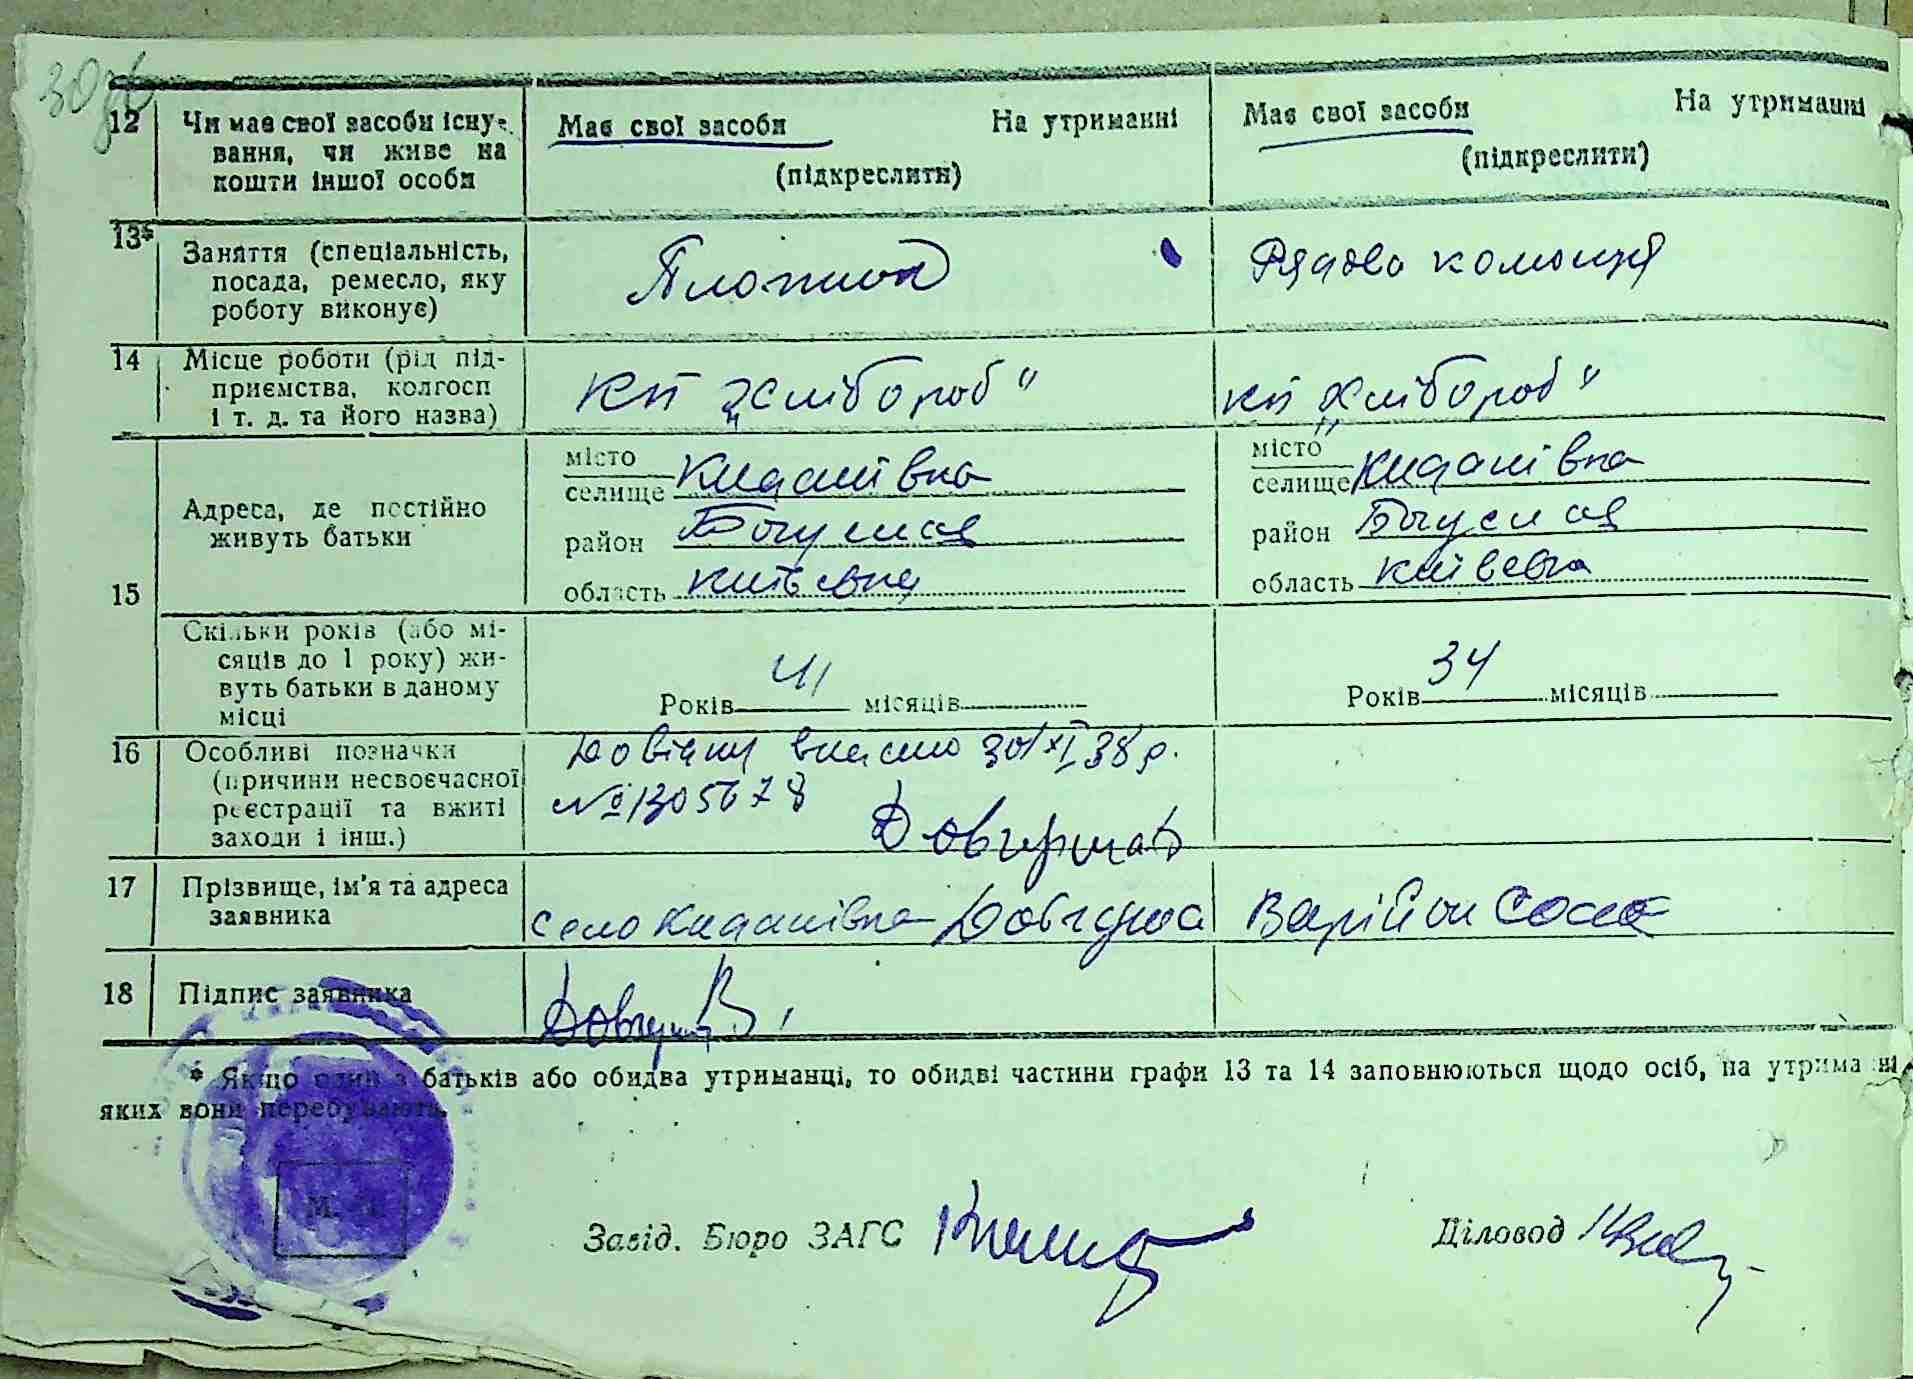 30
12 Чи має свої засоби існу-
вання, чи живе на
кошти іншої особи
Має свої засоби На утриманні
(підкреслити)
Має свої засоби На утриманні
(підкреслити)
13* Заняття (спеціальність,
посада, ремесло, яку
роботу виконує)
Плотник
Рядова колгоспу
14 Місце роботи (рід під-
приємства, колгосп
і т. д. та його назва)
КП „Хлібороб"
КП „Хлібороб"
15
Адреса, де постійно
живуть батьки
місто
селище Киданівка
район Богуслав
область Київська
місто
селище Киданівка
район Богуслав
область Київська
Скільки років (або мі-
сяців до 1 року) жи-
вуть батьки в даному
місці
Років 41 місяців
Років 34 місяців
16 Особливі позначки
(причини несвоєчасної
реєстрації та вжиті
заходи і інш.)
30/XI 38 р.
№ 1305678
17 Прізвище, ім'я та адреса
заявника
село Киданівка
18 Підпис заявника
* Якщо один з батьків або обидва утриманці, то обидві частини графи 13 та 14 заповнюються щодо осіб, на утриманні
яких вони перебувають.
М. П.
Завід. Бюро ЗАГС
Діловод